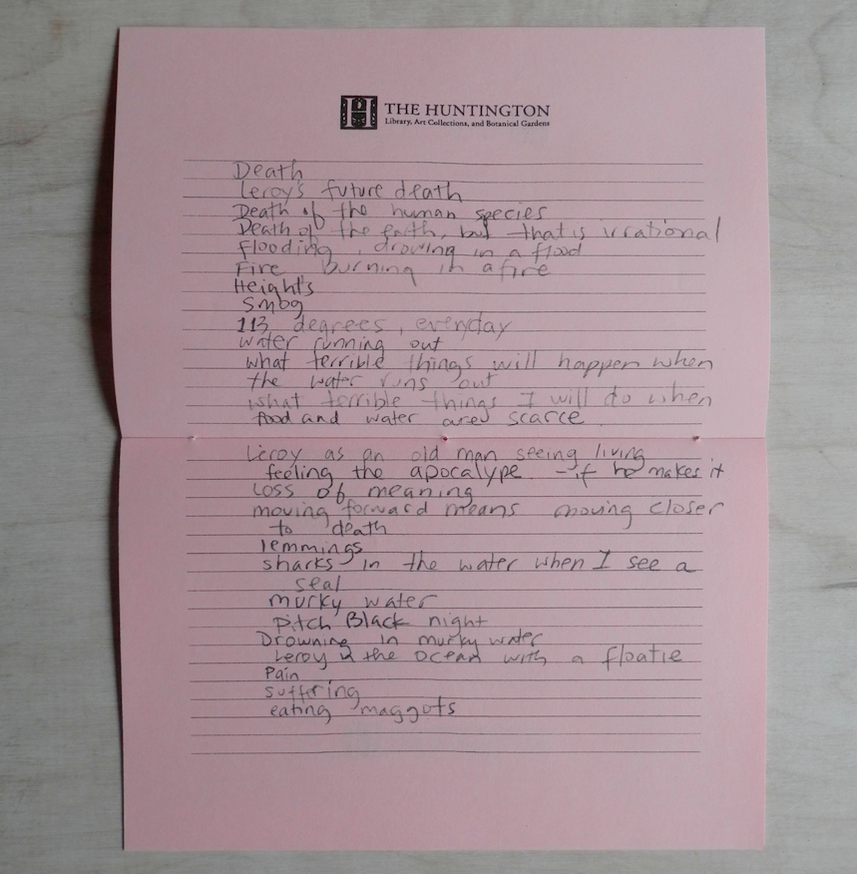 THE HUNTINGTON
Library, Art Collections, and Botanical Gardens
Death
Leroy's future death
Death of the human species
Death of the earth, but that is irrational
flooding, drowing in a flood
Fire burning in a fire
Heights
Smog
113 degrees, everyday
water running out
what terrible things will happen when
the water runs out
what terrible things I will do when
food and water are scarce
Leroy as an old man seeing living
feeling the apocalype - if he makes it
Loss of meaning
moving forward means moving closer
to death
lemmings
sharks in the water when I see a
seal
murky water
pitch Black night
Drowning in murky water
Leroy in the ocean with a floatie
Pain
suffering
eating maggots